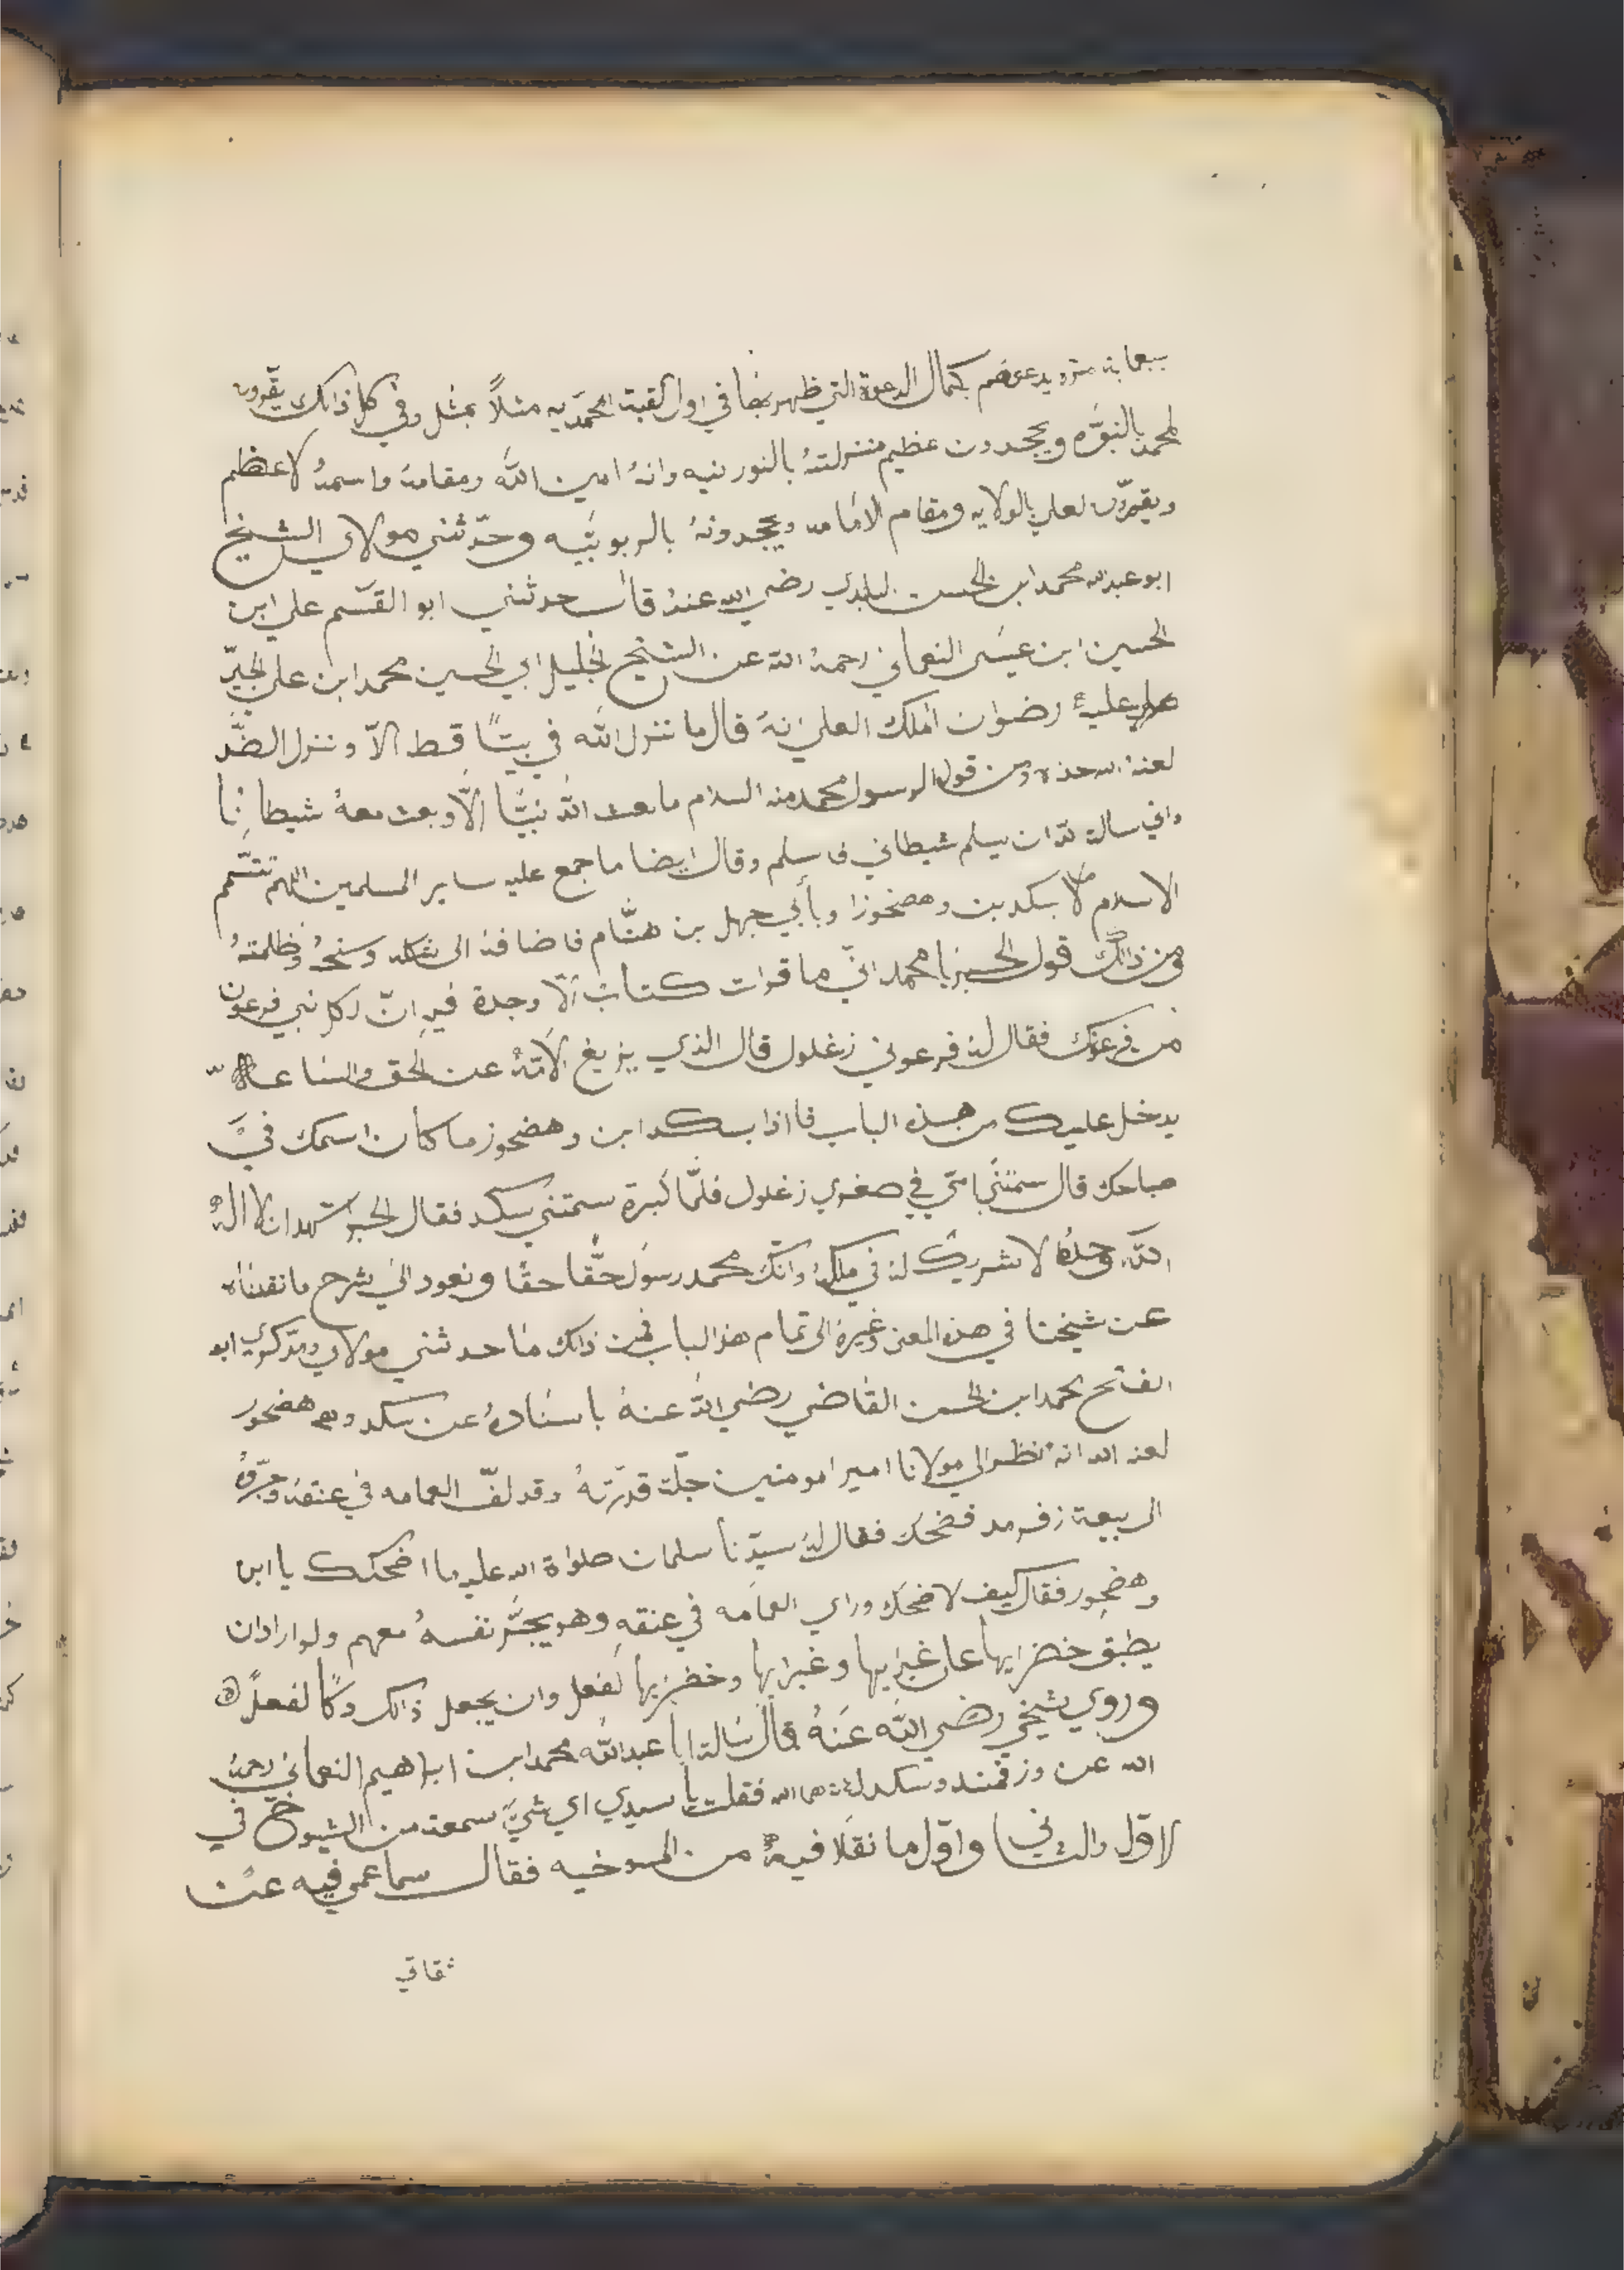 بكمال الدعوة التي ظهر بها في اول القبة المحمديه مثلاً بمثل وفي كل ذالك يقرون
لمحمد بالنبوّه ويجحدون عظيم منزلتهُ بالنورنيه وانهُ امين اللّه ومقامهُ واسمهُ لاعظم
ويقرّون لعلي بالولايه ومقام الامامه ويجحدونهُ بالربوبيّيه وحدّثني مولاي الشيخ
ابو عبدالله محمد ابن الحسن البلدي رضي الله عنهُ قال حدثني ابو القسم علي ابن
الحسين ابن عيسى النعماني رحمهُ الله عن الشيخ الجليل ابي الحسين محمد ابن علي الجليّ
عليهُ رضوان الملك العلي انهُ قال ما نزل اللّه في بيتًا قط الاّ ونزل الضّد
لعنهُ الله حذه ومن قول الرسول محمد منه السلام ما بعث اللّه نبيًّا الاّ وبعث معهُ شيطانًا
واني سالت اللّه ان يسلم شيطاني فاسلم وقال ايضا ما جمع عليه ساير المسلمين اللهم تتمّم
الاسلام بسكد بن وهضحوز او بأبي جهل بن هشّام فاضافهُ الى شكله وسنخهُ وظلمتهُ
ومن ذالك قول الحبر يا محمد انّي ما قرات كتاب الاّ وجدة فيهِ انّ لكل نبي فرعون
من فرعونك فقال لهُ فرعوني زغلول قال الذي يزيغ لامّتهُ عن الحق والساعه
يدخل عليك من هذه الباب فااذا بسكد ابن وهضحوز ما كان اسمك في
صباحك قال سمتني امّي في صغري زغلول فلمّا كبرة سمتني سكد فقال الحبر اشهد ان لا الهُ
اللّه وحدهُ لا شريك لهُ في ملكهُ وانّك محمد رسول حقًّا حقًا ونعود الى شرح ما نقلناه
عن شيخنا في هذه المعنى وغيرهُ الى تمام هذا الباب فمن ذالك ما حدثني مولاي ومذكوري ابو
الفتح محمد ابن الحسن القاضي رضي اللّه عنهُ باسنادهُ عن سكد وهضحور
لعنه الله انه نظر الي مولانا امير امومنين جلّة قدرّتهُ وقد لفّ العمامه في عنقهُ وجرّهُ
الى بيعة زفر فضحك فقال لهُ سيّدنا سلمان صلواة الله عليه ما اضحكك يا ابن
وهضحور فقال كيف لاضحك وراي العمامه في عنقهِ وهو يجرّ نفسهُ معهم ولو اراد ان
يطبق خضرايها على غبرايها وغبرايها وخضرايها لفعل وان يجعل ذالك دكًّا لفعلً
وروي شيخي رضي اللّه عنهُ قال سالة ابا عبداللّه محمد ابن ابراهيم النعماني رحمهُ
الله عن وزقمند وسكد لعنهما الله فقلت يا سيدي اي شيّ سمعة من الشيوخ في
لاوّل والثاني واوّل ما نقلا فيهُ من المسوخيه فقال سماعي فيه عن
ثقاتي